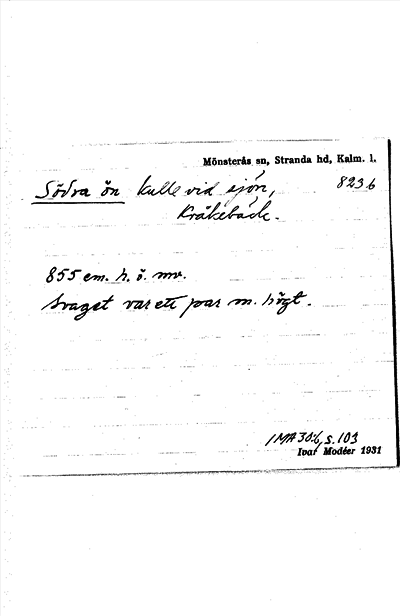 Mönsterås sn, Stranda hd, Kalm. l.
Södra ön kulle vid sjön, 823 b
Kråkebäck.
855 em. h. ö. mv.
var ett par m. högt.
IMA30:6, s. 103
Ivar Modéer 1931